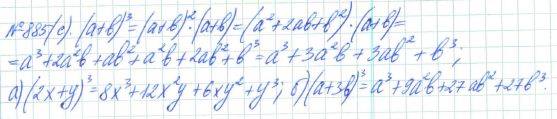 №885(с) (a+b)³=(a+b)²·(a+b)=(a²+2ab+b²)·(a+b)=
=a³+2a²b+ab²+a²b+2ab²+b³=a³+3a²b+3ab²+b³;
а)(2x+y)³=8x³+12x²y+6xy²+y³; б)(a+3b)³=a³+9a²b+27ab²+27b³.